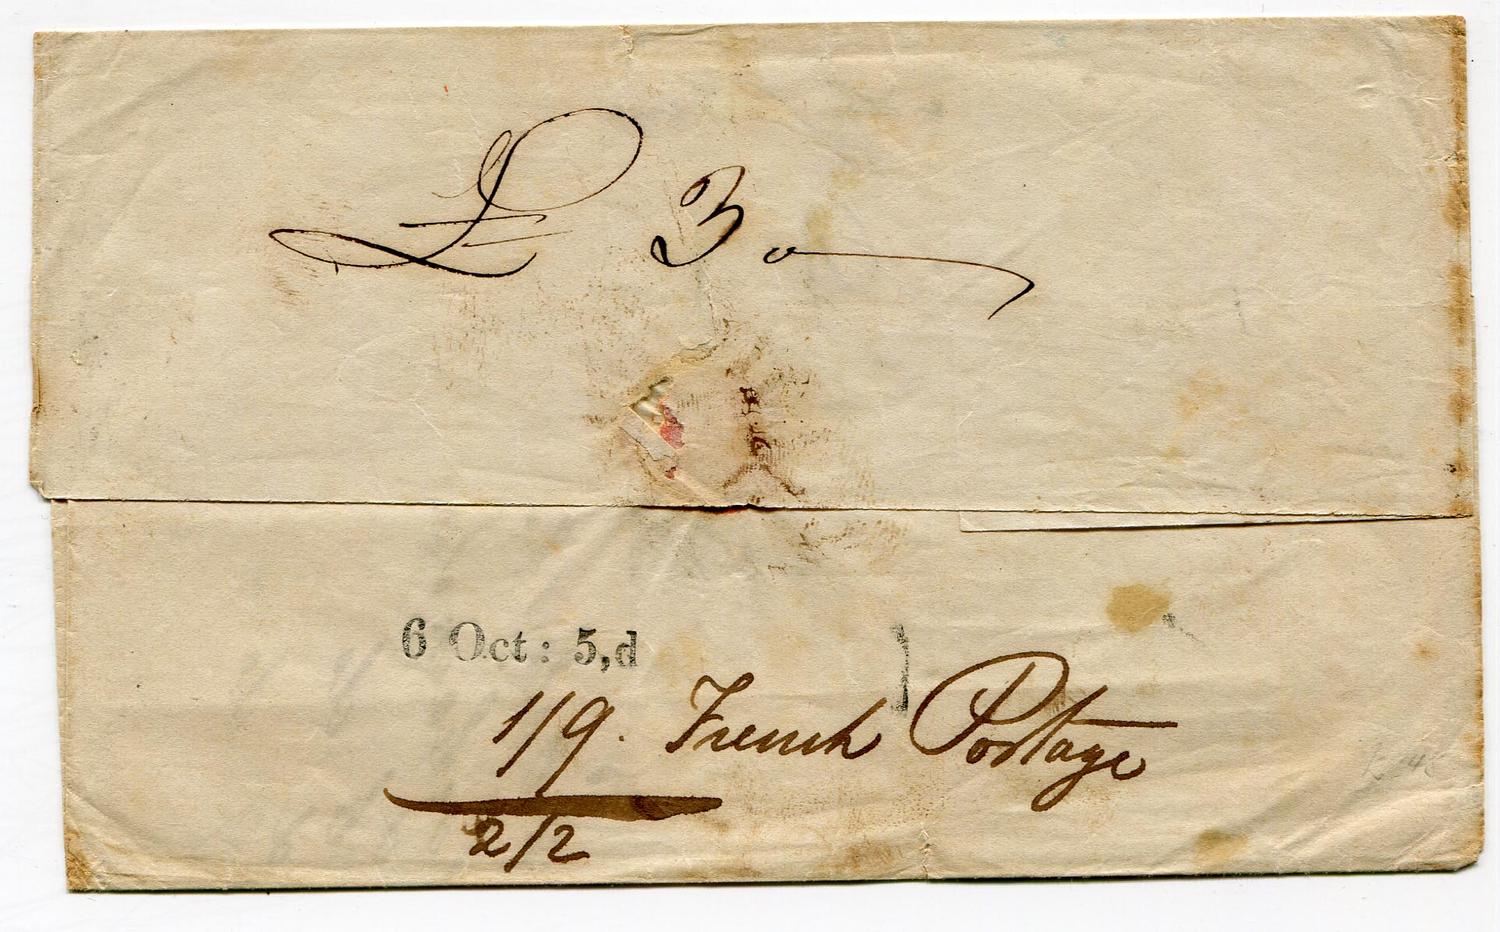 £ 3
6 Oct: 5,d
1/9. French Postage
2/2